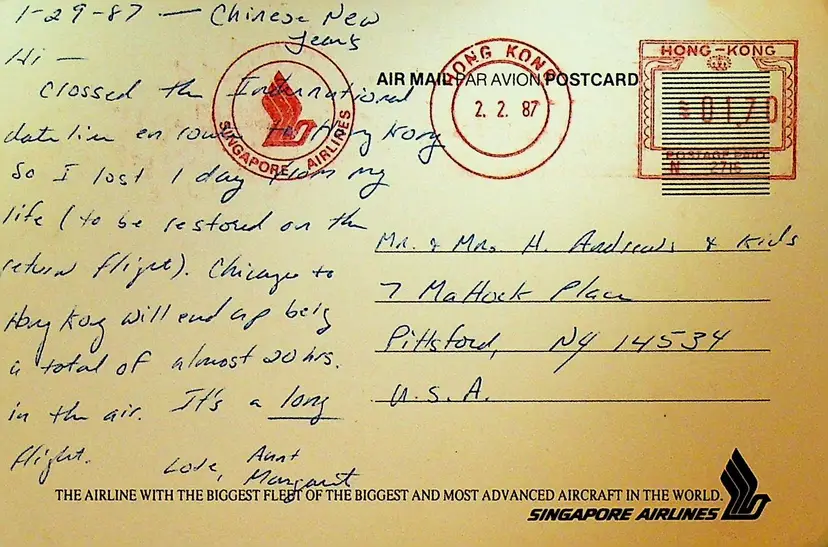 1-29-87 — Chinese New
Years
Hi —
Crossed the International
dateline en route to Hong Kong
So I lost 1 day from my
life (to be restored on the
return flight). Chicago to
Hong Kong will end up being
a total of almost 20 hrs.
in the air. It's a long
flight.
Love, Aunt
Margaret
SINGAPORE AIRLINES
AIR MAIL PAR AVION POSTCARD
HONG KONG
2. 2. 87
HONG-KONG
01.70
POSTAGE PAID
N 2716
Mr. & Mrs. H. Andrews & Kids
7 Mattock Place
Pittsford, NY 14534
U.S.A.
THE AIRLINE WITH THE BIGGEST FLEET OF THE BIGGEST AND MOST ADVANCED AIRCRAFT IN THE WORLD.
SINGAPORE AIRLINES